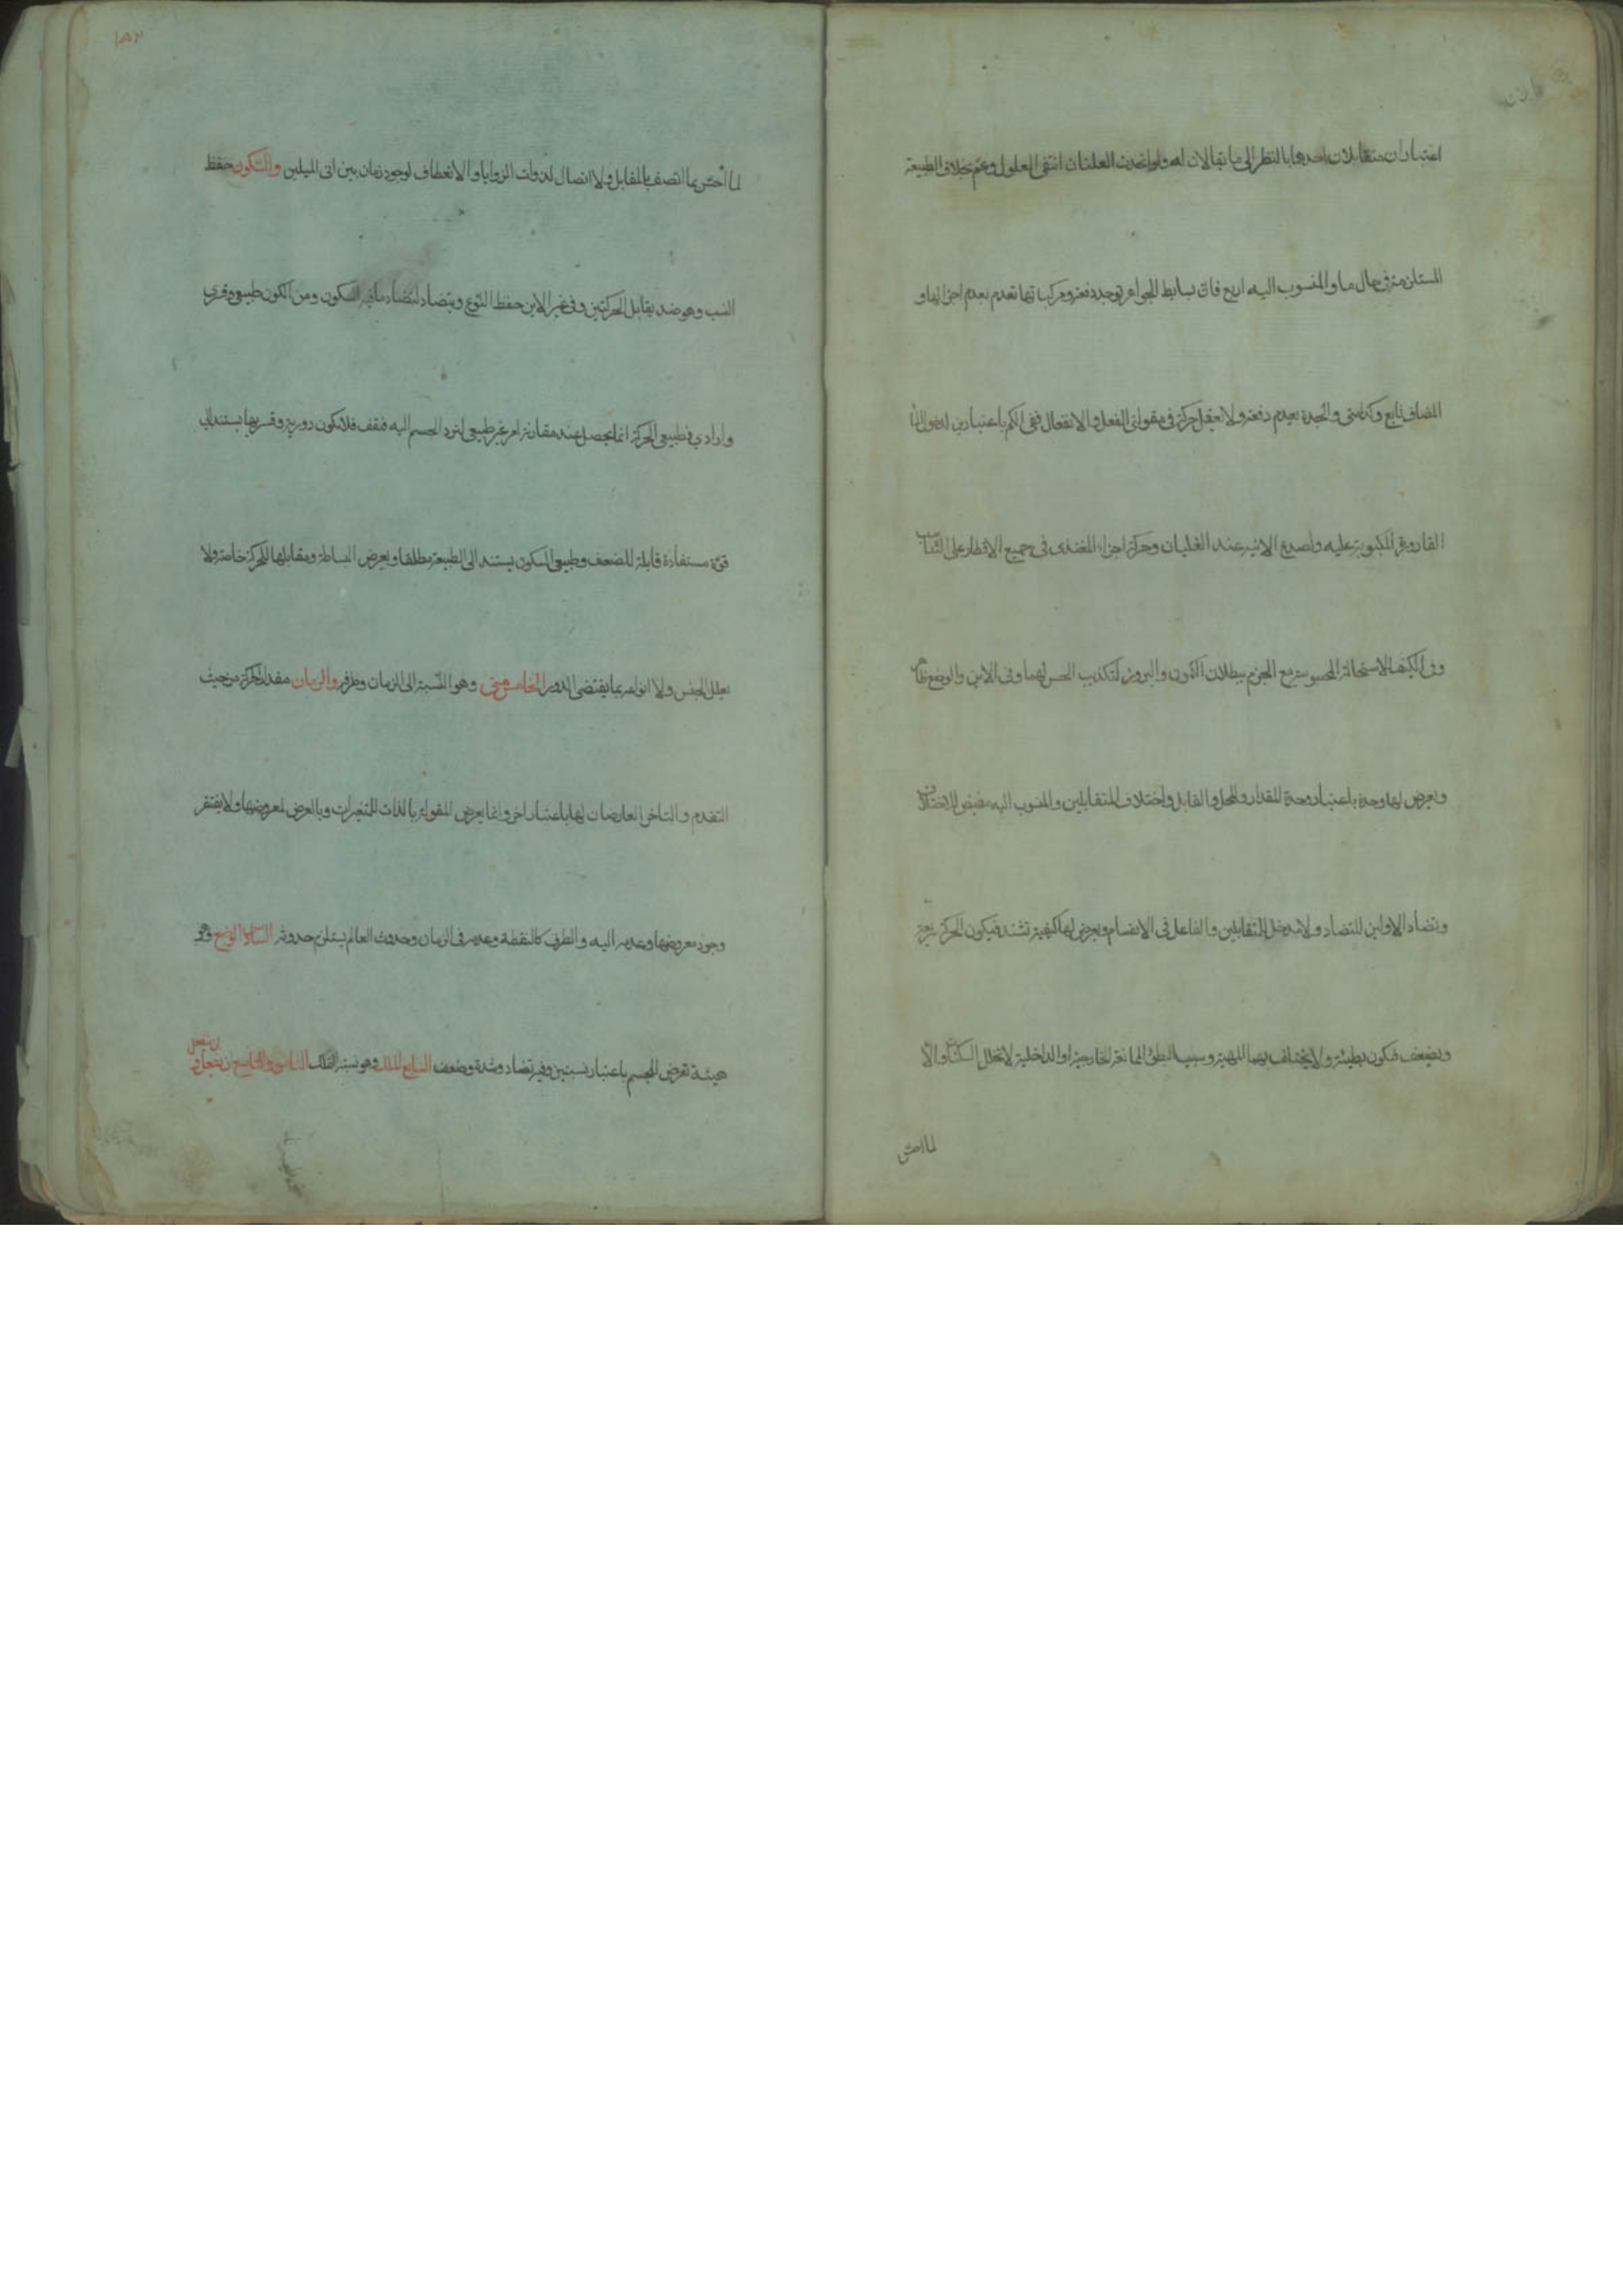 اعتباران متقابلان احدهما بالنظر الى ما يقالان له ولو اتحدت العلتان انتفى المعلول وعم بخلاف الطبيعة
المستلزمة في حال ما والمنسوب اليه اربع فان بسايط الجواهر توجد دفعة ومركباتها تعدم بعدم اجزائها و
المضاف تابع وكذا متى والجدة يعدم دفعة ولا تعقل حركة في مقولتي الفعل والانفعال ففي الكم باعتبارين لدخول الماء
القارورة المكبوبة عليه وتصدع الانية عند الغليان وحركة اجزاء المغتذي في جميع الاقطار على التناسب
وفي الكيف للاستحالة المحسوسة مع الجزم ببطلان الكمون والبروز لتكذيب الحس لهما وفي الاين والوضع ظاهر
ويعرض لها وحدة باعتبار وحدة المقدار والمحل والقابل واختلاف المتقابلين والمنسوب اليه مقتض للاختلاف
وتضاد الاولين للتضاد ولا مدخل للمتقابلين والفاعل في الانقسام ويعرض لها كيفية تشتد فيكون الحركة سريعة
وتضعف فيكون بطيئة ولا يختلف بهما المهية وسبب البطؤ الممانعة الخارجية او الداخلية لا تخلل السكنات والا
لما احس
١٥٢
لما احس بما اتصف بالمقابل ولا اتصال لذوات الزوايا والانعطاف لوجود زمان بين اني الميلين والسكون حفظ
النسب وهو ضد يقابل الحركتين وفي غير الاين حفظ النوع ويتضاد لتضاد ما فيه السكون ومن الكون طبيعي وقسري
وارادي فطبيعي الحركة انما يحصل عند مقارنة امر غير طبيعي لترد الجسم اليه فيقف فلا يكون دورية وقسريها يستند الى
قوة مستفادة قابلة للضعف وطبيعي السكون يستند الى الطبيعة مطلقا ويعرض البساطة ومقابلها للحركة خاصة ولا
يعلل الجنس ولا انواعه بما يقتضي الدور الخامس متى وهو النسبة الى الزمان وطرفه والزمان مقدار الحركة من حيث
التقدم والتاخر العارضان لها باعتبار اخر وانما يعرض المقولة بالذات للمتغيرات وبالعرض لمعروضها ولا يفتقر
وجود معروضها وعدمه اليه والطرف كالنقطة وعدمه في الزمان وحدوث العالم يستلزم حدوثه السادس الوضع وهو
هيئة تعرض للجسم باعتبار نسبتين وفيه تضاد وشدة وضعف السابع الملك وهو نسبة التملك الثامن والتاسع ان يفعل و
ان ينفعل